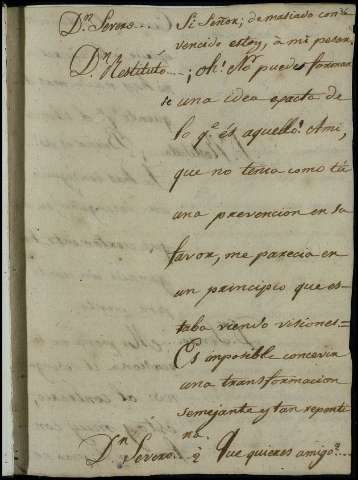 Dn Severo... Si Señor; demasiado con-
vencido estoy, à mi pesar.
Dn Restituto...; oh! No puedes formar
te una idea exacta de
lo qe és aquello! A mi,
que no tenia como tú
una prevencion en su
favor, me parecia en
un principio que es-
taba viendo visiones=
Es imposible concevir
una transformacion
semejante y tan repenti
na.
Dn Severo... ¿ Que quieres amigo?...